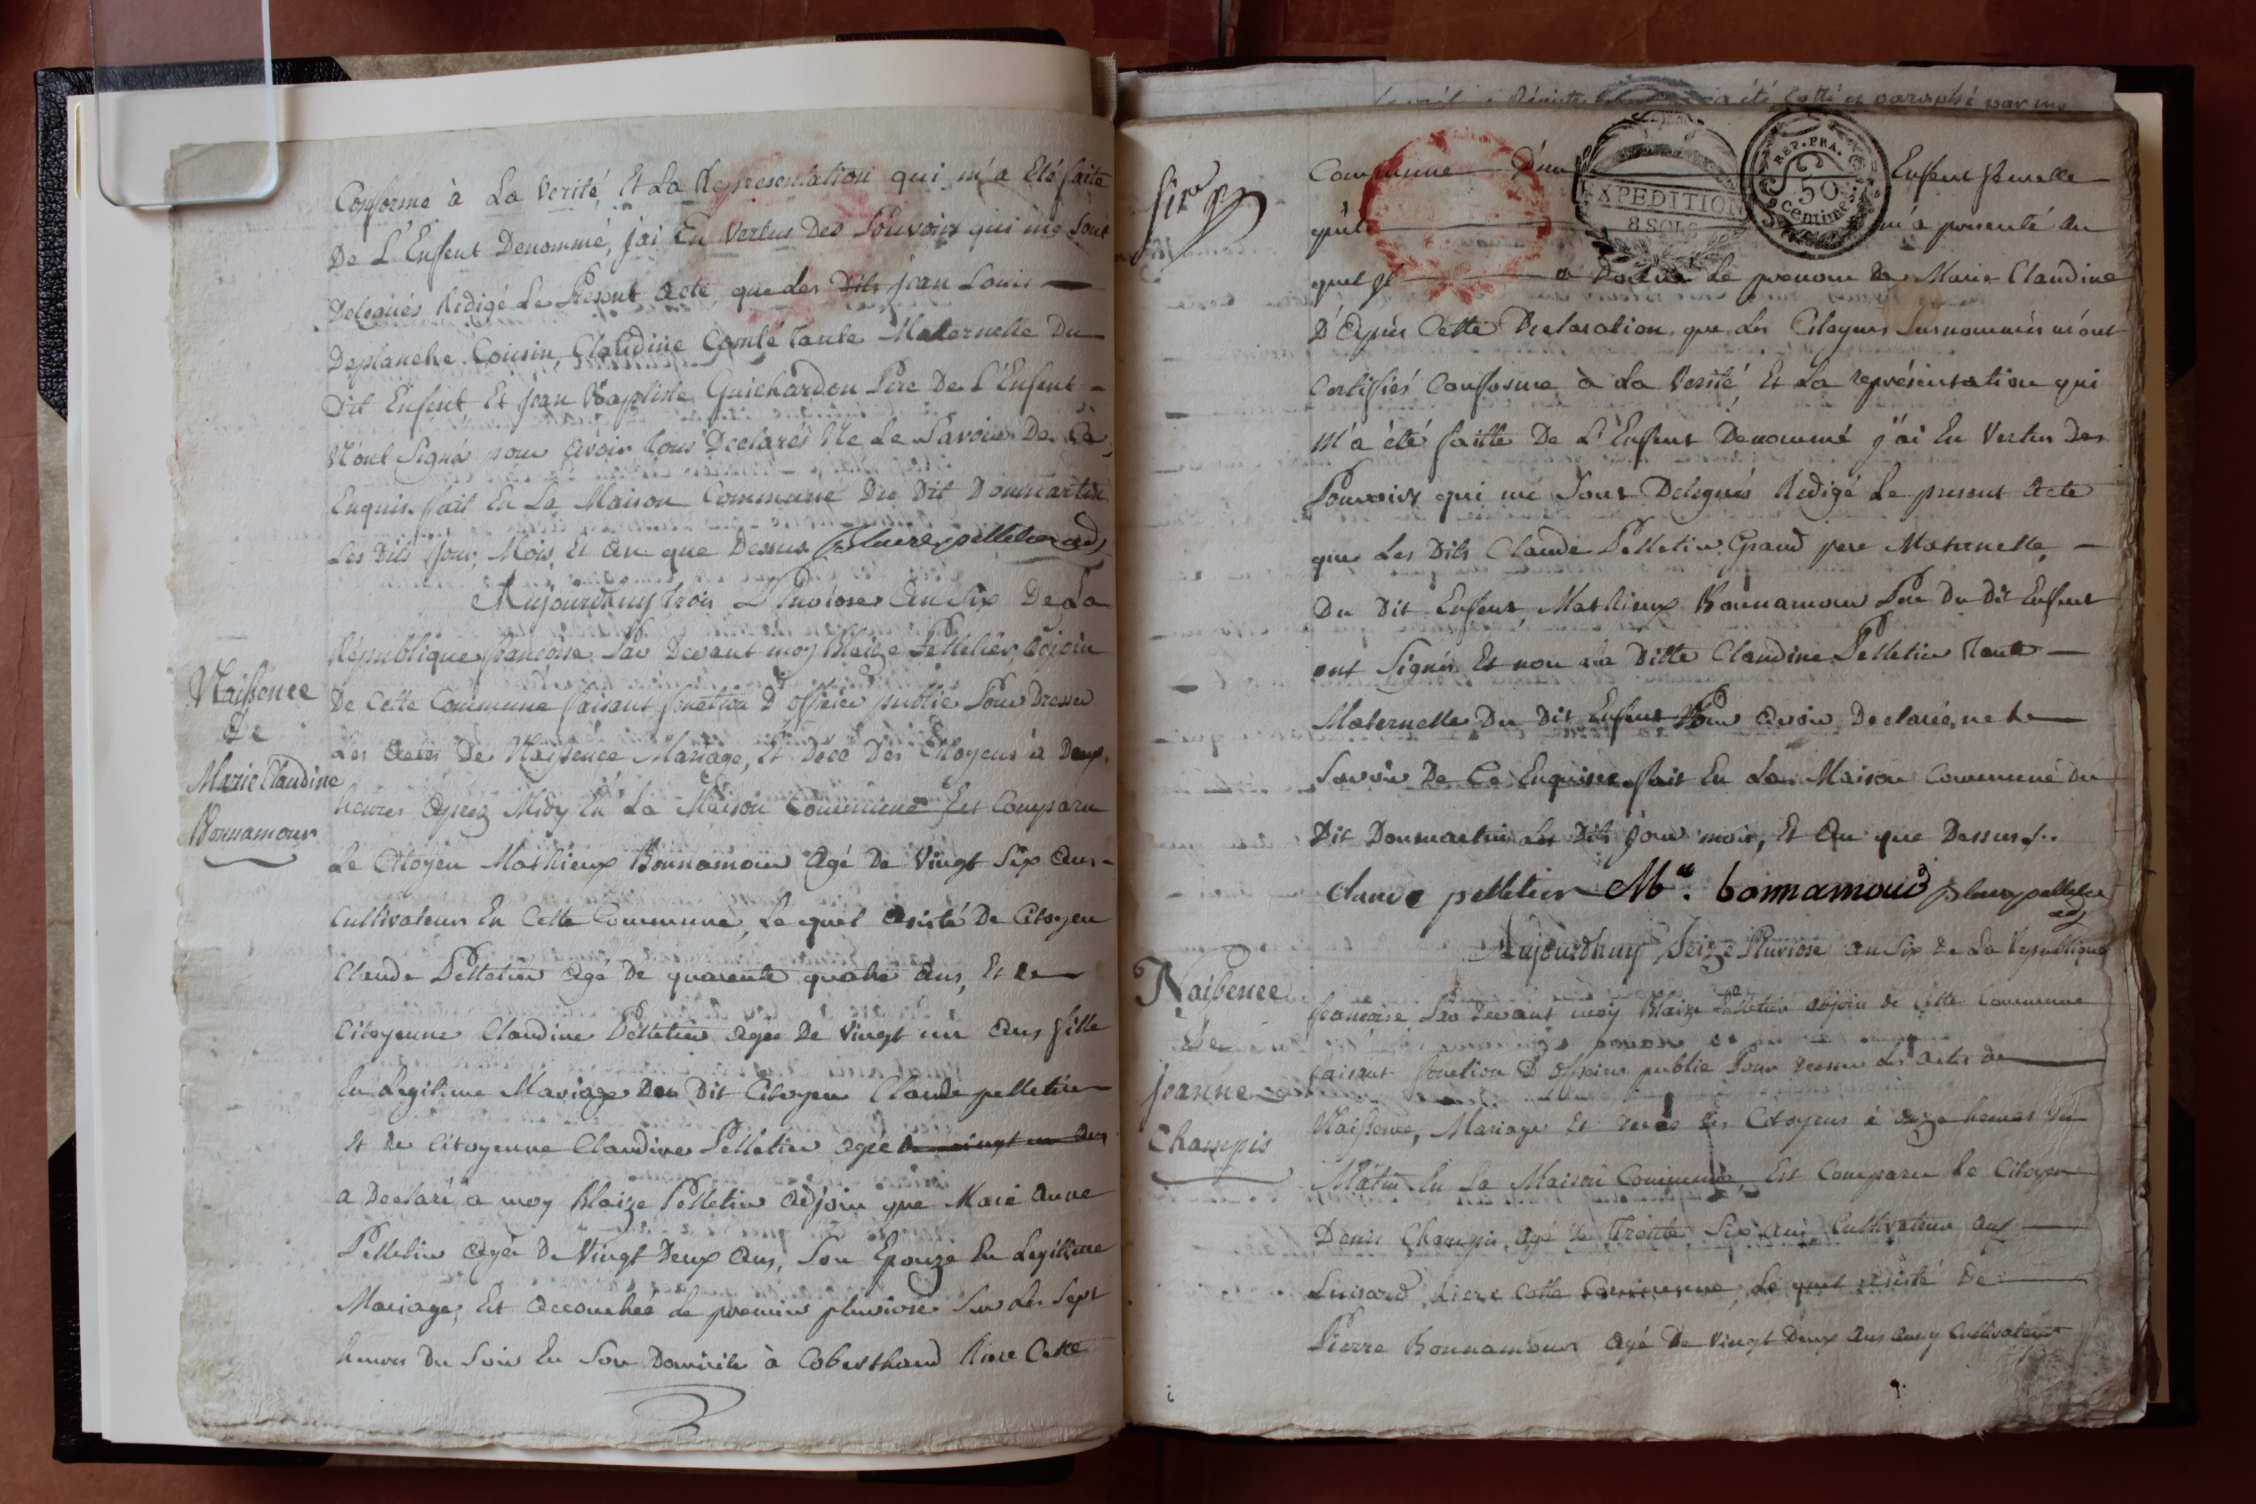 Conforme à La Verité, Et La Representation qui m'a Eté faite
De L'Enfent Denommé, j'ai En Vertus Des Pouvoirs qui me Sont
Delegués Redigé Le Present Acte, que Les Dits jean Louis
Deplanche Cousin, Claudine Comte Tante Maternelle Du
Dit Enfent, Et jean Baptiste Guichardon Pere De L'Enfent
N'ont Signé pour Avoir tous Declarés Ne Le Savoir De Ce
Enquis. fait En La Maison Commune Du Dit Dommartin
Les Dits jour, Mois, Et An que Dessus pelletier adj
Aujourdhuy trois Pluviose An Six De La
République francoise Par Devant moy Blaize Pelletier, Adjoin
De Cette Commune faisant fonction D'officier public Pour Dresser
Les Actes De Naissence Mariage, Et Décé Des Citoyens à Deux
heures Aprez Midy En La Maison Commune Est Comparu
Le Citoyen Mathieux Bonnamour Agé De Vingt Six Ans
Cultivateur En Cette Commune, Le quel Asisté De Citoyen
Claude Pelletier Agé De quarente quatre Ans, Et De
Citoyenne Claudine Pelletier Agée De Vingt un Ans fille
En Legitime Mariage Du Dit Citoyen Claude pelletier
Et De Citoyenne Claudine Pelletier agée de vingt un ans
a Declaré a moy Blaize Pelletier Adjoin que Marie Anne
Pelletier Agée De Vingt Deux Ans, Son Epouze En Legitime
Mariage, Est Accouchée Le premier pluviose Sur Les Sept
heures Du Soir En Son Domicile à Coberthoud Riere Cette
Naissence
De
Marie Claudine
Bonnamour
EXPEDITION
8 SOLS
REP. FRA.
50
Centimes
Commune D'un Enfent femelle
qu'il m'a presenté Au
quel Il a Donné Le prenom De Marie Claudine
D'Après Cette Declaration que Les Citoyens Surnommés m'ont
Certifiés Conforme à La Verité, Et La représentation qui
M'a été faitte De L'Enfent Denommé j'ai En Vertus Des
Pouvoirs qui me Sont Delegués Redigé Le present Acte
que Les Dits Claude Pelletier Grand pere Maternelle
Du Dit Enfent, Mathieux Bonnamour Pere Du Dit Enfent
ont Signés Et non La Ditte Claudine Pelletier Tante
Maternelle Du Dit Enfent Pour Avoir Declarée ne Le
Savoir De Ce Enquise. fait En La Maison Commune Du
Dit Dommartin Les Dits jour mois, Et An que Dessus
claude pelletier Mt. bonnamour pelletier
adj
Aujourdhuy Seize Pluviose an Six de La Republique
francoise Par devant moy Blaize Pelletier adjoin de Cette Commune
faisant fonction D'officier public Pour dresser Les actes de
Naissence, Mariage Et décés des Citoyens à onze heures Du
Matin En La Maison Commune, Est Comparu Le Citoyen
Denis Champis, agé de Trente Six Ans, Cultivateur au
Luisard, Riere Cette Commune, Le quel asisté De
Pierre Bonnamour Agé De Vingt Deux Ans aussy Cultivateur
Naissence
De
jeanne
Champis